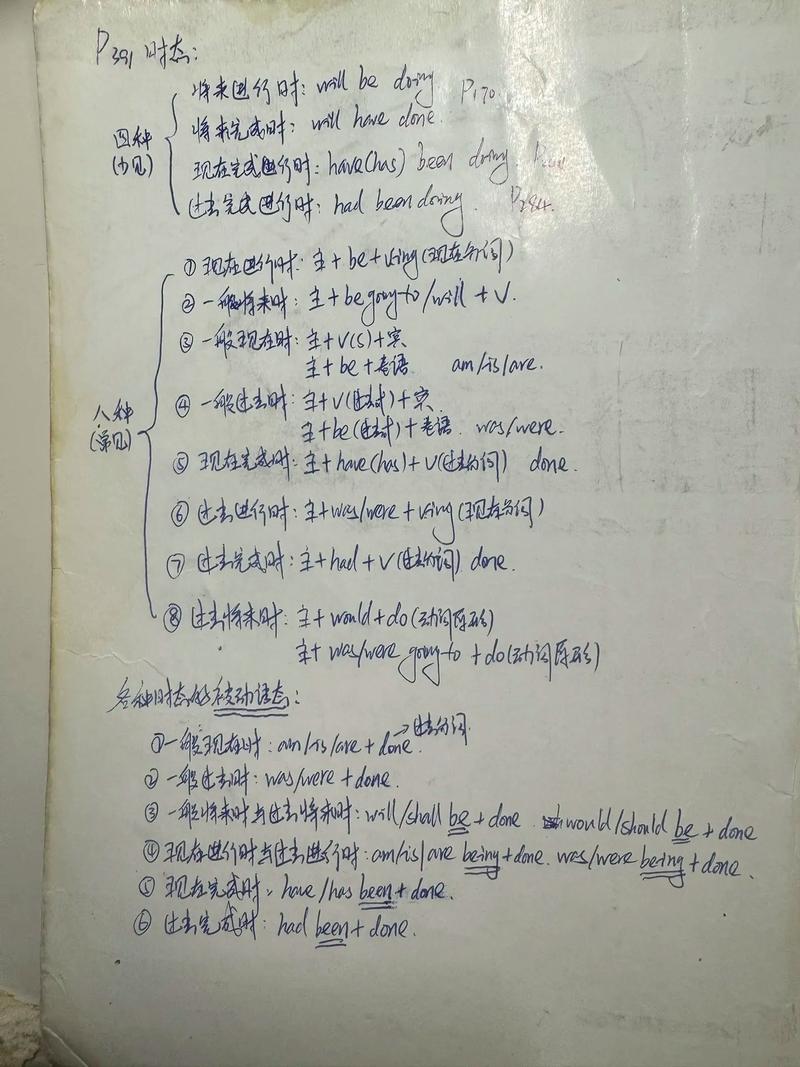 P391 时态:
将来进行时: will be doing P170
四种(少见) 将来完成时: will have done.
现在完成进行时: have(has) been doing.
过去完成进行时: had been doing. P284.
①现在进行时: 主+be+ving(现在分词)
②一般将来时: 主+be going to/will + V.
③一般现在时: 主+V(s)+宾
主+be+表语 am/is/are.
八种(常见) ④一般过去时: 主+V(过去式)+宾.
主+be(过去式)+表语. was/were.
⑤现在完成时: 主+have(has)+V(过去分词) done.
⑥过去进行时: 主+was/were+ving(现在分词)
⑦过去完成时: 主+had+V(过去分词) done.
⑧过去将来时: 主+would+do(动词原形)
主+ was/were going to +do(动词原形)
各种时态的被动语态:
①一般现在时: am/is/are+done. →过去分词
②一般过去时: was/were +done.
③一般将来时与过去将来时: will/shall be+done. would/should be+done
④现在进行时与过去进行时: am/is/are being+done. was/were being+done.
⑤现在完成时: have/has been+done.
⑥过去完成时: had been+done.